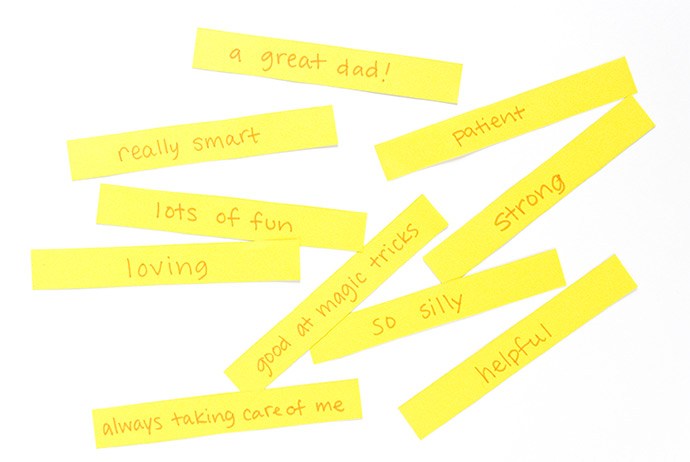 a great dad!
patient
really smart
strong
lots of fun
loving
good at magic tricks
so silly
helpful
always taking care of me